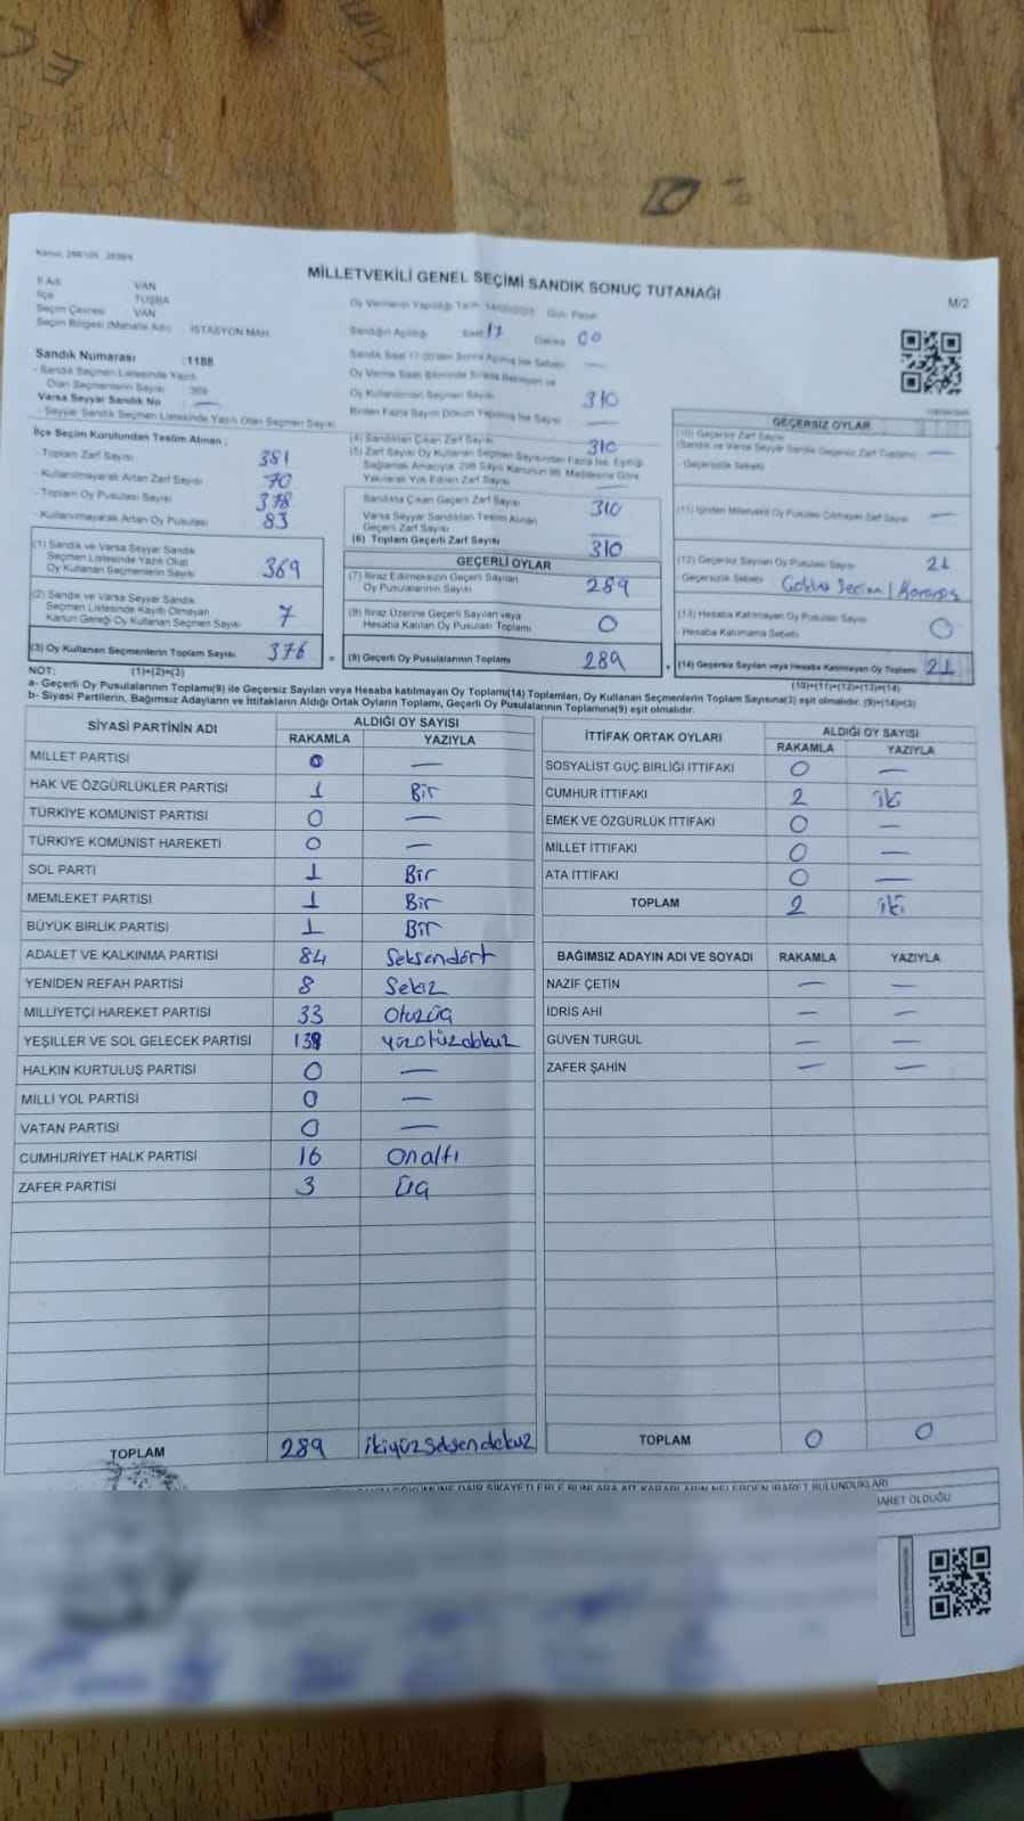 MİLLETVEKİLİ GENEL SEÇİMİ SANDIK SONUÇ TUTANAĞI
M/2
İl Adı VAN
İlçe TUŞBA
Seçim Çevresi VAN
Seçim Bölgesi (Mahalle Adı) İSTASYON MAH.
Oy Vermenin Yapıldığı Tarih Gün Pazar
Sandığın Açılışı Saat 17 Dakika 00
Sandık Numarası :1188
- Sandık Seçmen Listesinde Yazılı
Olan Seçmenlerin Sayısı
Varsa Seyyar Sandık No —
- Seyyar Sandık Seçmen Listesinde Yazılı Olan Seçmen Sayısı
Oy Kullanılan Seçmen Sayısı 310
Birden Fazla Sayım Döküm Yapılmış İse Sayısı —
İlçe Seçim Kurulundan Teslim Alınan :
- Toplam Zarf Sayısı 381
- Kullanılmayarak Artan Zarf Sayısı 70
- Toplam Oy Pusulası Sayısı 378
- Kullanılmayarak Artan Oy Pusulası 83
(1) Sandık ve Varsa Seyyar Sandık
Seçmen Listesinde Yazılı Olup
Oy Kullanan Seçmenlerin Sayısı 369
(2) Sandık ve Varsa Seyyar Sandık
Seçmen Listesinde Kayıtlı Olmayan
Kanun Gereği Oy Kullanan Seçmen Sayısı 7
(3) Oy Kullanan Seçmenlerin Toplam Sayısı 376
(4) Sandıktan Çıkan Zarf Sayısı 310
(5) Zarf Sayısı Oy Kullanan Seçmen Sayısından Fazla İse, Eşitliği
Sağlamak Amacıyla, 298 Sayılı Kanunun 98. Maddesine Göre
Yakılarak Yok Edilen Zarf Sayısı —
Sandıkta Çıkan Geçerli Zarf Sayısı 310
Varsa Seyyar Sandıktan Teslim Alınan
Geçerli Zarf Sayısı
(6) Toplam Geçerli Zarf Sayısı 310
GEÇERLİ OYLAR
(7) İtiraz Edilmeksizin Geçerli Sayılan
Oy Pusulalarının Sayısı 289
(8) İtiraz Üzerine Geçerli Sayılan veya
Hesaba Katılan Oy Pusulası Toplamı 0
(9) Geçerli Oy Pusulalarının Toplamı 289
GEÇERSİZ OYLAR
(10) Geçersiz Zarf Sayısı
(Sandık ve Varsa Seyyar Sandık Geçersiz Zarf Toplamı) —
Geçersizlik Sebebi
(11) İçinden Milletvekili Oy Pusulası Çıkmayan Zarf Sayısı —
(12) Geçersiz Sayılan Oy Pusulası Sayısı 21
Geçersizlik Sebebi
(13) Hesaba Katılmayan Oy Pusulası Sayısı 0
- Hesaba Katılmama Sebebi
(14) Geçersiz Sayılan veya Hesaba Katılmayan Oy Toplamı 21
NOT: (1)+(2)=(3)
(10)+(11)+(12)+(13)=(14)
a- Geçerli Oy Pusulalarının Toplamı(9) ile Geçersiz Sayılan veya Hesaba katılmayan Oy Toplamı(14) Toplamları, Oy Kullanan Seçmenlerin Toplam Sayısına(3) eşit olmalıdır. (9)+(14)=(3)
b- Siyasi Partilerin, Bağımsız Adayların ve İttifakların Aldığı Ortak Oyların Toplamı, Geçerli Oy Pusulalarının Toplamına(9) eşit olmalıdır.
SİYASİ PARTİNİN ADI ALDIĞI OY SAYISI
RAKAMLA YAZIYLA
MİLLET PARTİSİ 0 —
HAK VE ÖZGÜRLÜKLER PARTİSİ 1 Bir
TÜRKİYE KOMÜNİST PARTİSİ 0 —
TÜRKİYE KOMÜNİST HAREKETİ 0 —
SOL PARTİ 1 Bir
MEMLEKET PARTİSİ 1 Bir
BÜYÜK BİRLİK PARTİSİ 1 Bir
ADALET VE KALKINMA PARTİSİ 84 Seksendört
YENİDEN REFAH PARTİSİ 8 Sekiz
MİLLİYETÇİ HAREKET PARTİSİ 33 Otuzüç
YEŞİLLER VE SOL GELECEK PARTİSİ 139 yüzotüzdokuz
HALKIN KURTULUŞ PARTİSİ 0 —
MİLLİ YOL PARTİSİ 0 —
VATAN PARTİSİ 0 —
CUMHURİYET HALK PARTİSİ 16 Onaltı
ZAFER PARTİSİ 3 Üç
TOPLAM 289 ikiyüzseksendokuz
İTTİFAK ORTAK OYLARI ALDIĞI OY SAYISI
RAKAMLA YAZIYLA
SOSYALİST GÜÇ BİRLİĞİ İTTİFAKI 0 —
CUMHUR İTTİFAKI 2 iki
EMEK VE ÖZGÜRLÜK İTTİFAKI 0 —
MİLLET İTTİFAKI 0 —
ATA İTTİFAKI 0 —
TOPLAM 2 iki
BAĞIMSIZ ADAYIN ADI VE SOYADI RAKAMLA YAZIYLA
NAZİF ÇETİN — —
İDRİS AHİ — —
GÜVEN TURGUL — —
ZAFER ŞAHİN — —
TOPLAM 0 0
DAİR ŞİKAYETLERLE BUNLARA AİT KARARLARIN NELERDEN İBARET BULUNDUKLARI
İBARET OLDUĞU